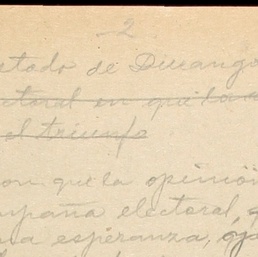 2
etado de Durango
ctoral en que la
el triunfo
on que la opinión
mpaña electoral,
na esperanza, oj